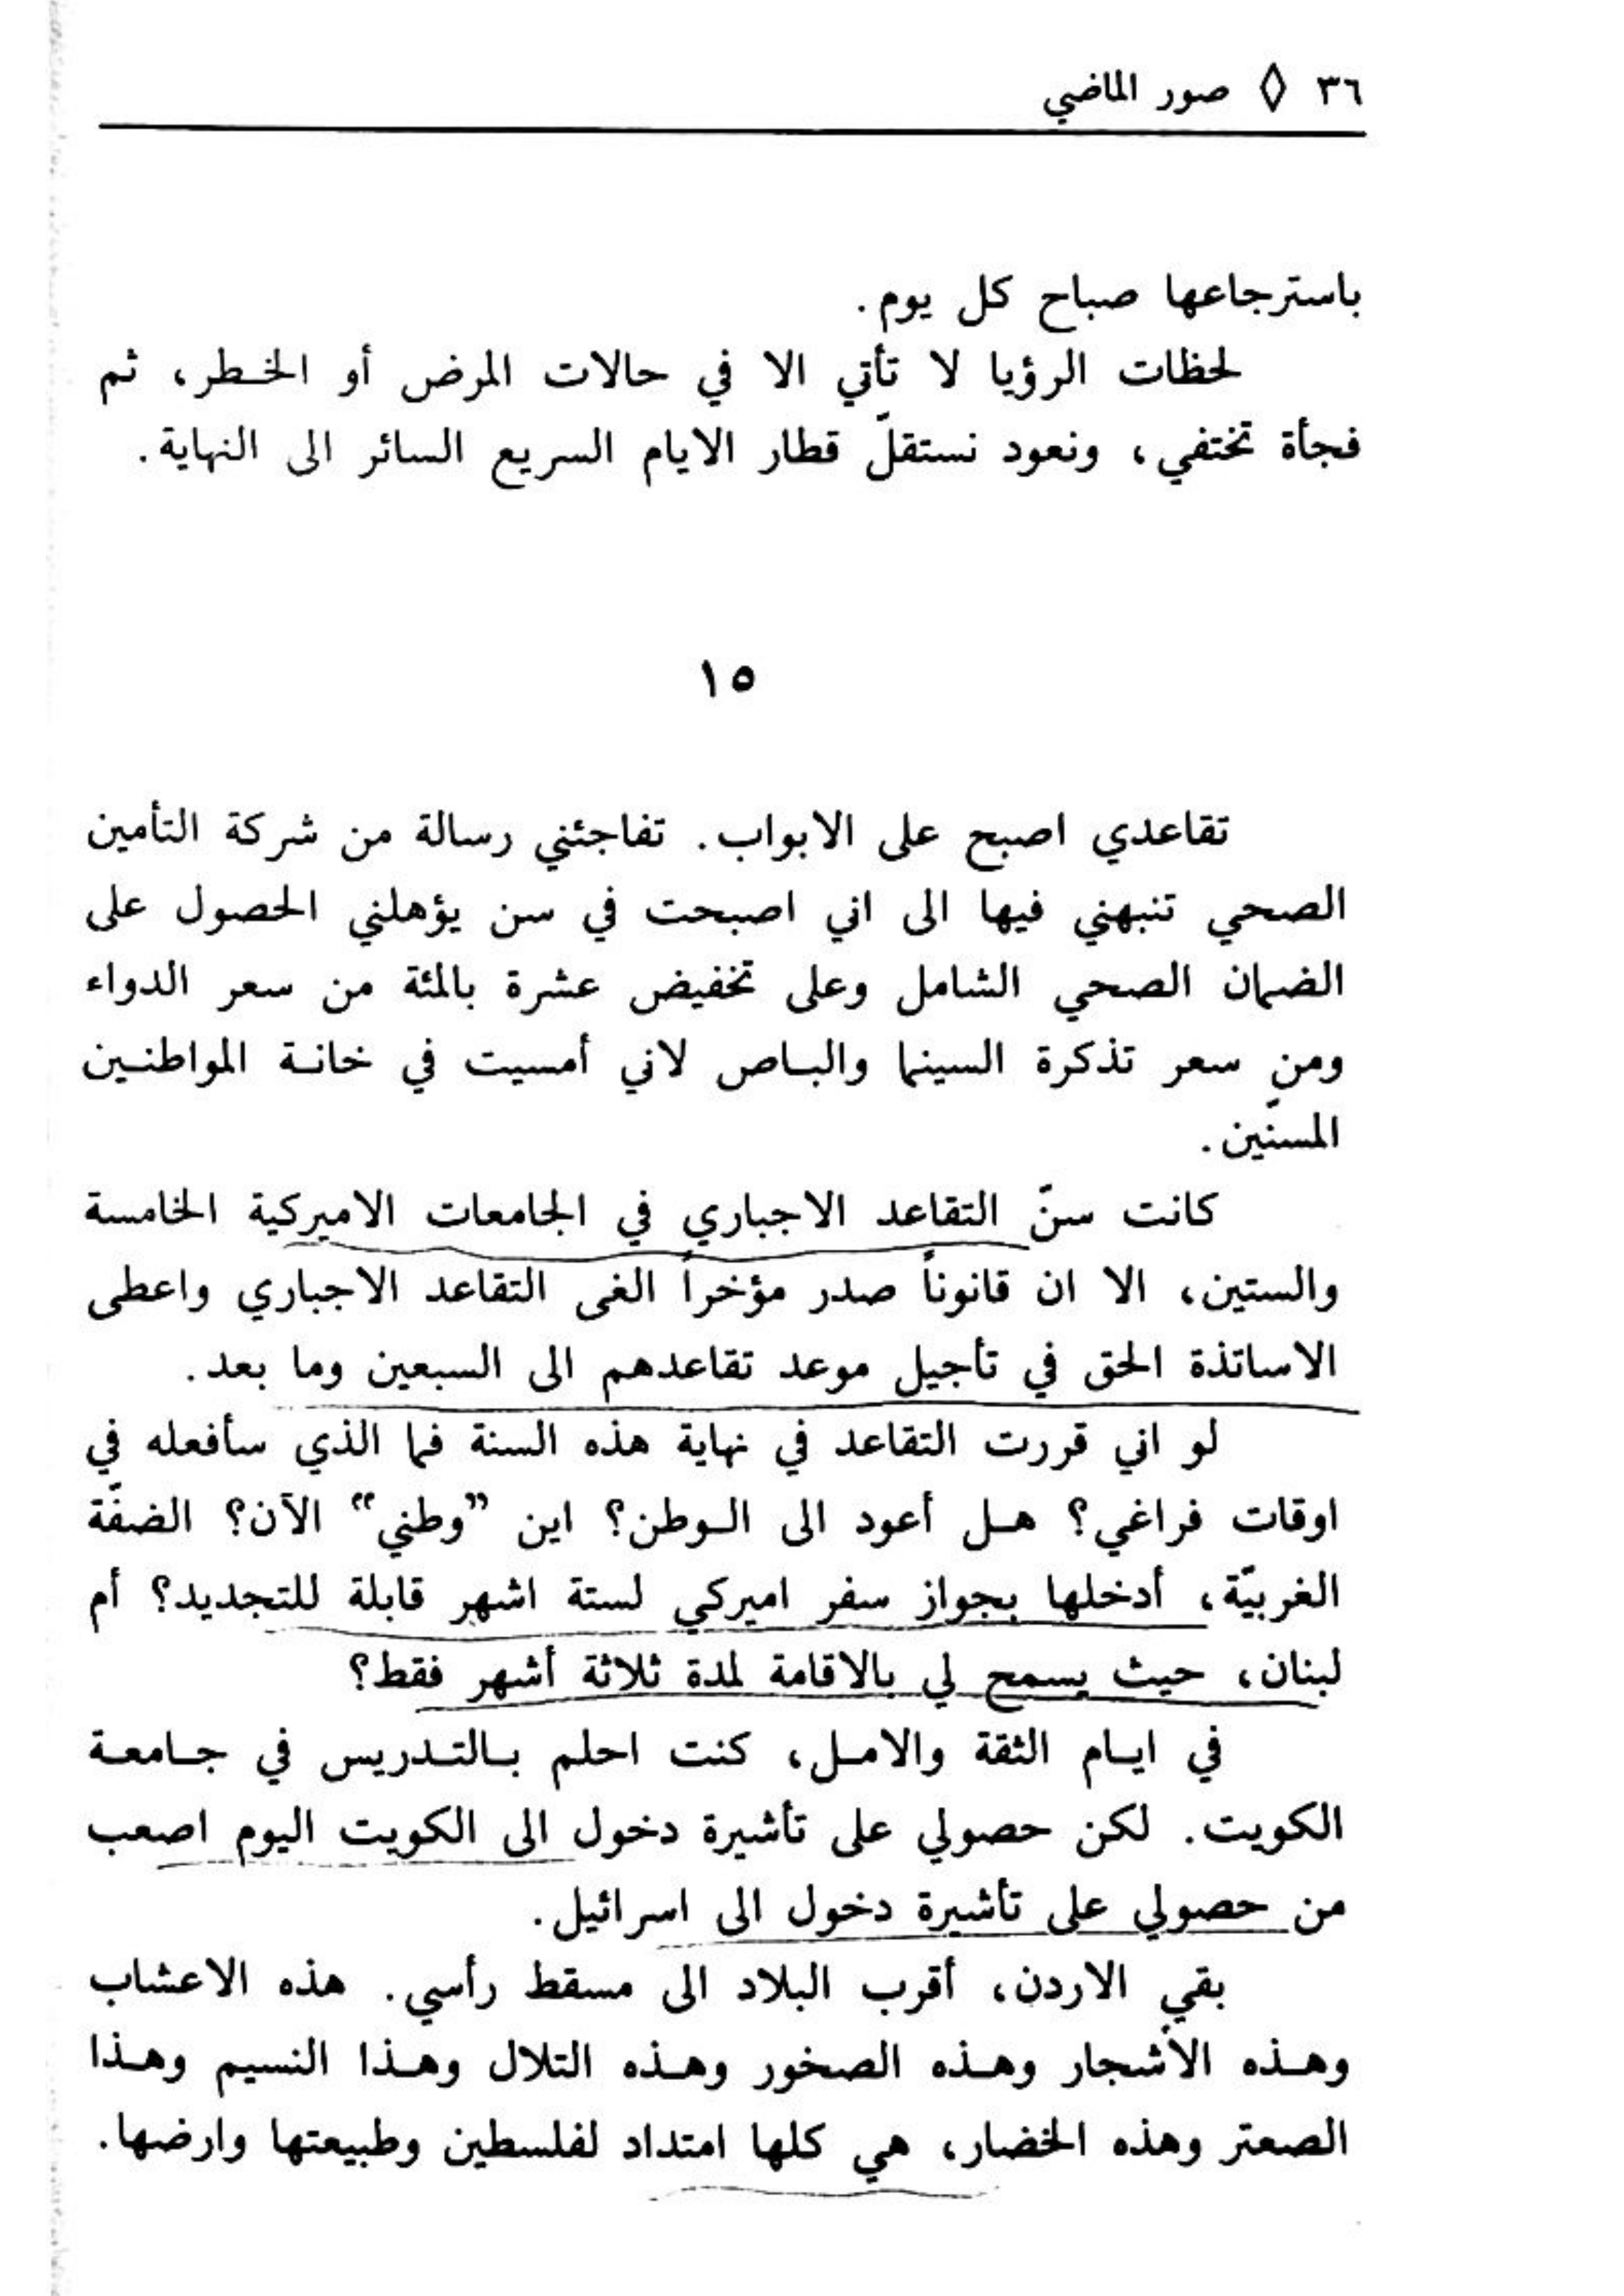 ٣٦ ◊ صور الماضي
باسترجاعها صباح كل يوم.
لحظات الرؤيا لا تأتي الا في حالات المرض أو الخطر، ثم
فجأة تختفي، ونعود نستقلّ قطار الايام السريع السائر الى النهاية.
١٥
تقاعدي اصبح على الابواب. تفاجئني رسالة من شركة التأمين
الصحي تنبهني فيها الى اني اصبحت في سن يؤهلني الحصول على
الضمان الصحي الشامل وعلى تخفيض عشرة بالمئة من سعر الدواء
ومن سعر تذكرة السينما والباص لاني أمسيت في خانة المواطنين
المسنّين.
كانت سنّ التقاعد الاجباري في الجامعات الاميركية الخامسة
والستين، الا ان قانوناً صدر مؤخراً الغى التقاعد الاجباري واعطى
الاساتذة الحق في تأجيل موعد تقاعدهم الى السبعين وما بعد.
لو اني قررت التقاعد في نهاية هذه السنة فما الذي سأفعله في
اوقات فراغي؟ هل أعود الى الوطن؟ اين ”وطني“ الآن؟ الضفّة
الغربيّة، أدخلها بجواز سفر اميركي لستة اشهر قابلة للتجديد؟ أم
لبنان، حيث يسمح لي بالاقامة لمدة ثلاثة أشهر فقط؟
في ايام الثقة والامل، كنت احلم بالتدريس في جامعة
الكويت. لكن حصولي على تأشيرة دخول الى الكويت اليوم اصعب
من حصولي على تأشيرة دخول الى اسرائيل.
بقي الاردن، أقرب البلاد الى مسقط رأسي. هذه الاعشاب
وهذه الأشجار وهذه الصخور وهذه التلال وهذا النسيم وهذا
الصعتر وهذه الخضار، هي كلها امتداد لفلسطين وطبيعتها وارضها.